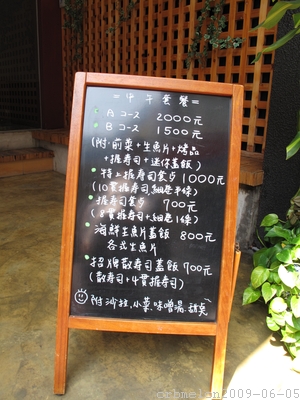 ＝中午套餐＝
A コース 2000元
B コース 1500元
(附·前菜+生魚片+烤品
+握壽司+迷你蓋飯)
特上握壽司套餐 1000元
(10貫握壽司,細卷半條)
握壽司套餐 700元
(8貫握壽司+細卷1條)
海鮮生魚片蓋飯 800元
各式生魚片
招牌散壽司蓋飯 700元
(散壽司+4貫握壽司)
附沙拉,小菜,味噌湯,甜點
2009-06-05